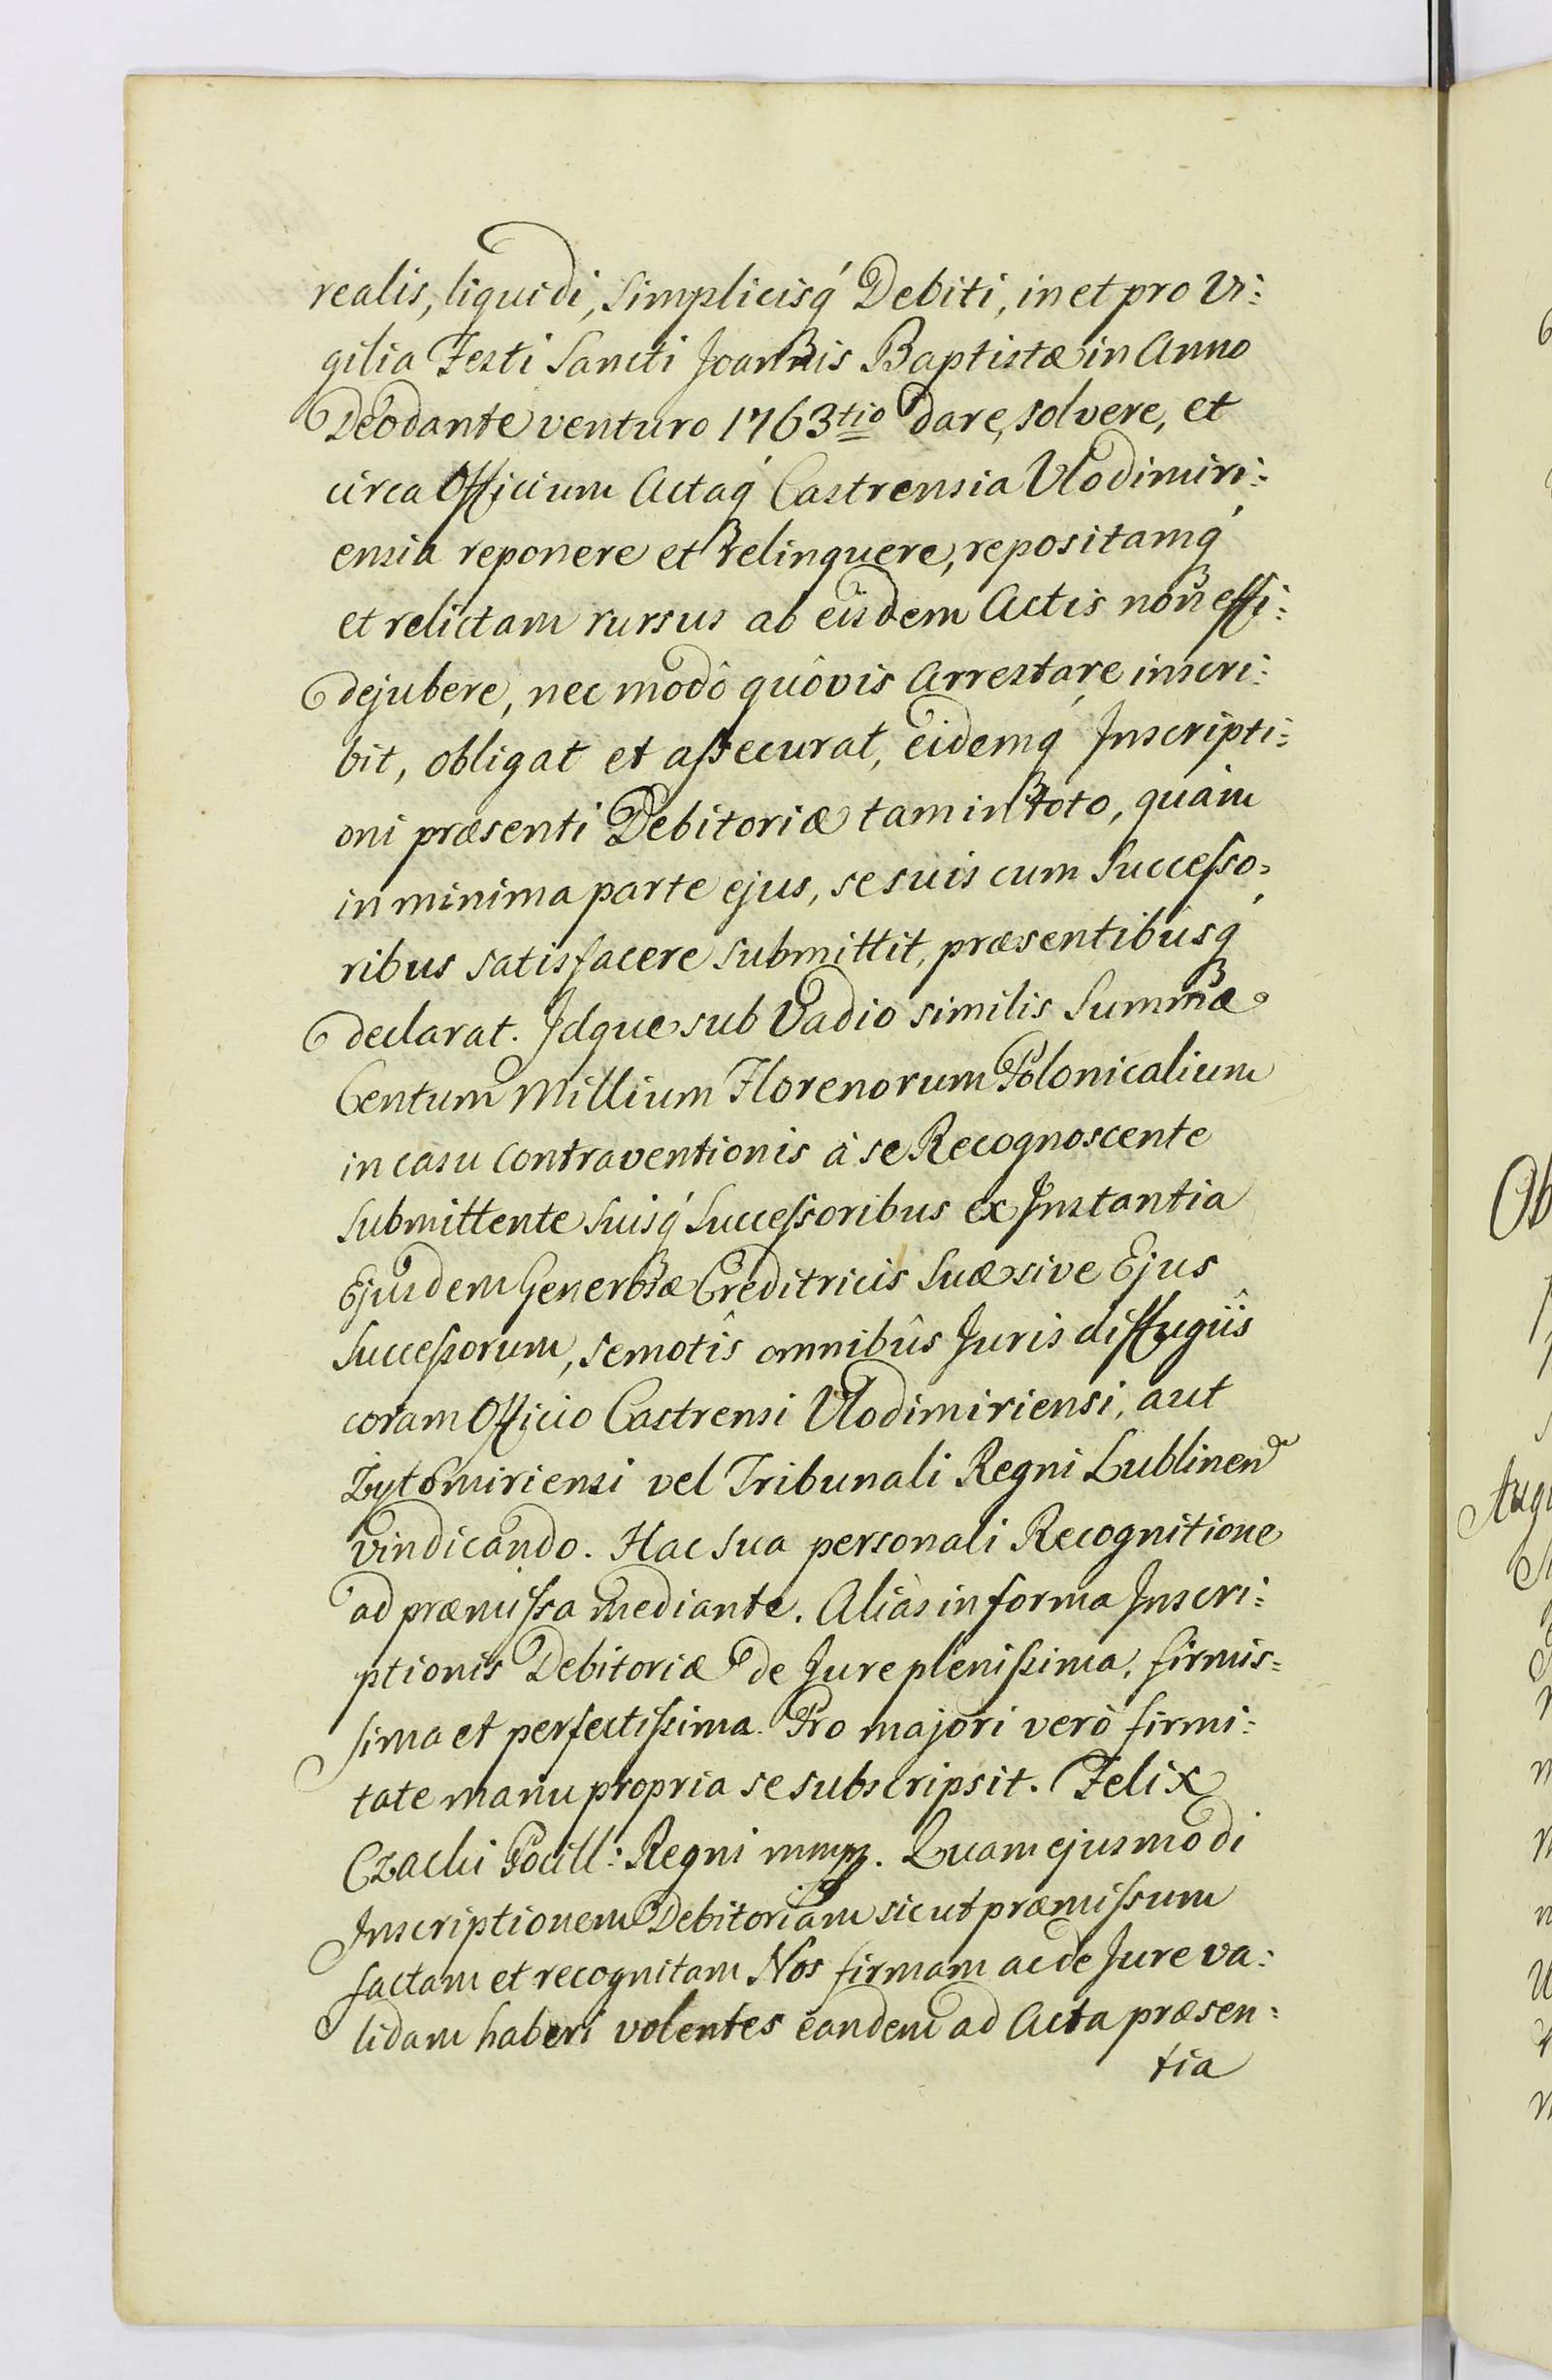 realis, liquidi, simplicisq́ Debiti, in et pro Vi:
gilia Festi Sancti Joannis Baptistæ in Anno
Deodante venturo 1763tio dare, solvere, et
circa Officium Actaq́ Castrensia Vlodimiri:
ensia reponere et relinquere, repositamq́
et relictam rursus ab eisdem Actis non effi:
dejubere, nec modô quôvis Arrestare inscri:
bit, obligat et assecurat, eidemq́ Inscripti:
oni præsenti Debitoriæ tam in toto, quàm
in minima parte ejus, se suis cum Successo:
ribus satisfacere submittit, præsentibusq́
declarat. Idque sub Vadio similis Summæ
Centum Millium Florenorum Polonicalium
in casu Contraventionis à se Recognoscente
submittente suisq́ Successoribus ex Instantia
Ejusdem Generosæ Creditricis Suæ sive Ejus
Successorum, semotîs omnibûs Juris diffugiîs
coram Officio Castrensi Vlodimiriensi, aut
Zytomiriensi vel Tribunali Regni Lublinen
vindicando. Hac sua personali Recognitione
ad præmissa mediante. Aliàs in forma Inscri:
ptionis Debitoriæ de Jure plenissima, firmis:
sima et perfectissima. Pro majori verò firmi:
tate manu propria se subscripsit. Felix
Czacki Pocill: Regni mmpp. Quam ejusmodi
Inscriptionem Debitoriam sicut præmissum
factam et recognitam Nos firmam ac de Jure va:
lidam haberi volentes eandem ad Acta præsen:
tia